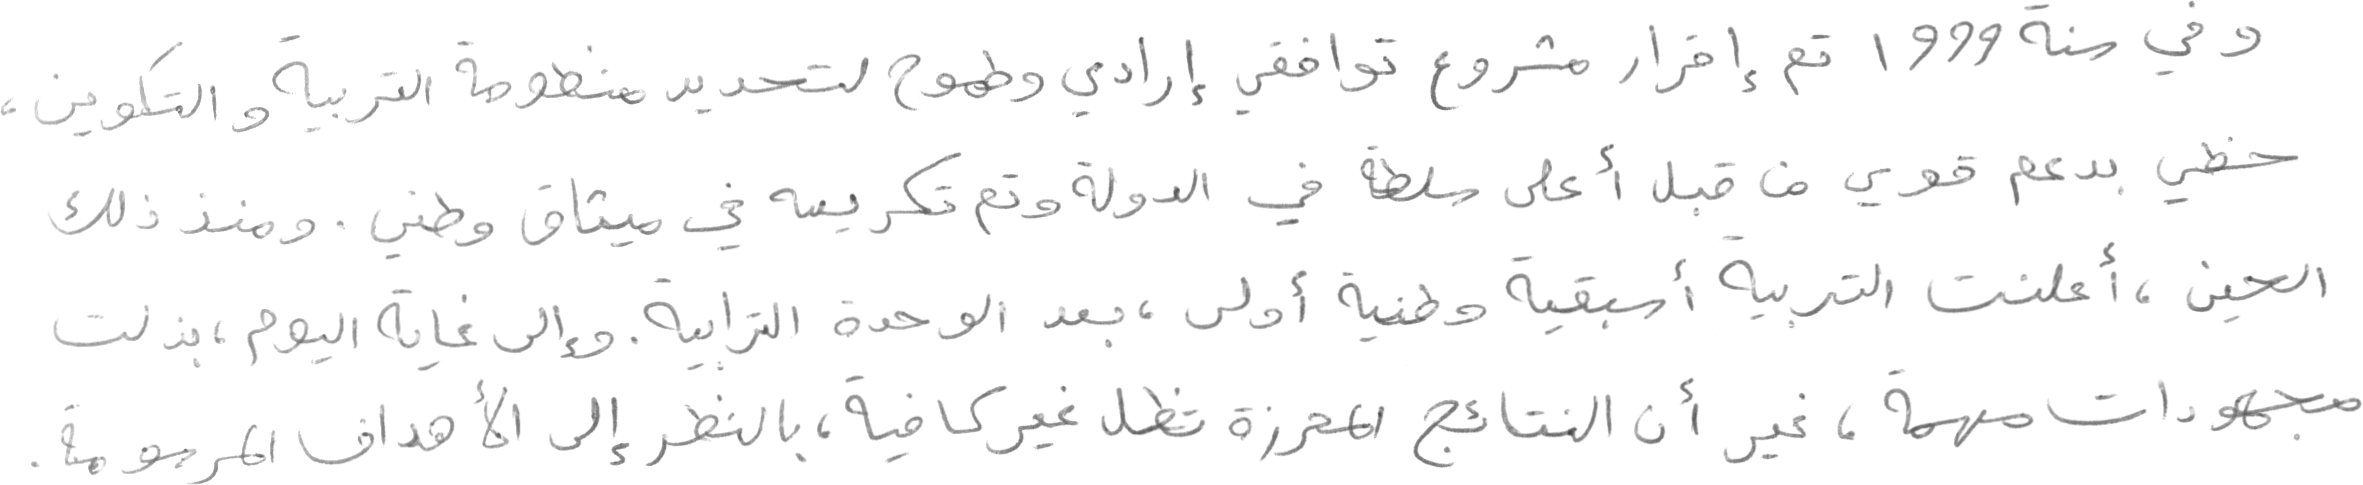 و في سنة 1999 تم إقرار مشروع توافقي إرادي وطموح لتحديد منظومة التربية و التكوين،
حظي بدعم قوي من قبل أعلى سلطة في الدولة وتم تكريسه في ميثاق وطني. ومنذ ذلك
الحين، أعلنت التربية أسبقية وطنية أولى، بعد الوحدة الترابية. وإلى غاية اليوم، بذلت
مجهودات مهمة، غير أن النتائج المحرزة تظل غير كافية، بالنظر إلى الأهداف المرسومة.